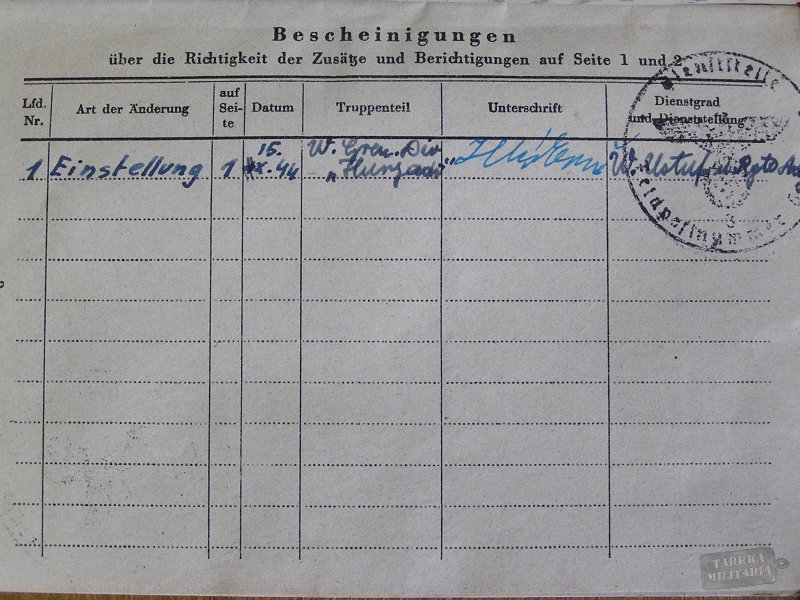 Bescheinigungen
über die Richtigkeit der Zusätze und Berichtigungen auf Seite 1 und 2
Lfd. Nr. Art der Änderung auf Sei- te Datum Truppenteil Unterschrift Dienstgrad und Dienststellung
1 Einstellung 1 15. X. 44 W. Gren. Div „Hunyadi" W. Ustuf. u. Rgts Ad
Dienststelle
Feldpostnummer
TARRKA
MILITARIA